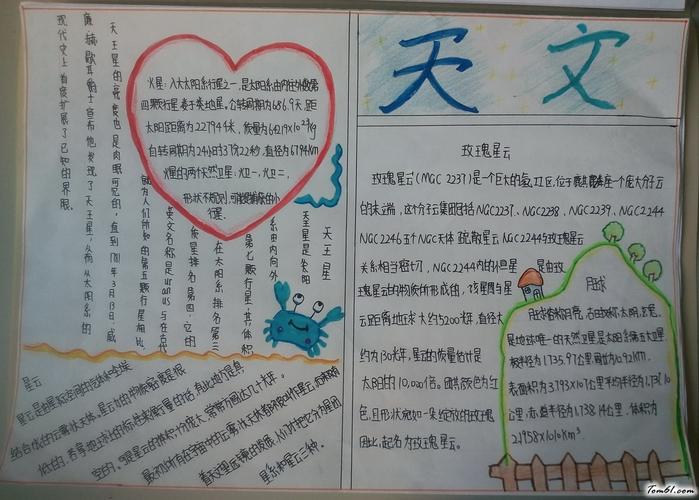 天文
火星：八大太阳系行星之一，是太阳系由内往外数第
四颗行星，属于类地星，公转周期为686.9天，距
太阳距离为22794千米，质量为6.4219×10²³kg
自转周期为24小时37分22秒，直径为6794KM
火星的两个天然卫星：火卫一，火卫二，
形状不规则，可能是捕获的小
行星。
天王星
天王星是太阳
系由内向外
第七颗行星，其体积
在太阳系排名第三
质量排名第四，它的
英文名称是Uranus与在古代
就为人们所知的第五颗行星相比，
天王星的亮度也是肉眼可见的，直到1781年3月13日，威
廉·赫歇耳爵士宣布他发现了天王星，从而从太阳系的
现代史上首度扩展了已知的界限。
星云
星云是由星际空间的气体和尘埃
结合成的云雾状天体，星云的物质密度是很
低的，若拿地球上的标准来衡量的话，有些地方是真
空的。可是星云的体积十分庞大，常常方圆达几十光年。
最初所有在宇宙中的云雾状天体都被叫作星云，后来随
着天文望远镜的发展，人们才把它分为星团
星系和星云三种。
玫瑰星云
玫瑰星云(NGC 2237)是一个巨大的氢，工区，位于麒麟座一个庞大分子云
的末端，这个分子云集团包括NGC2237、NGC2238、NGC2239、NGC2244
NGC2246五个NGC天体 疏散星云NGC2244与玫瑰星云
关系相当密切，NGC2244内的恒星 是由玫
瑰星云的物质所形成的，该星团与星
云距离地球大约5200光年，直径大
约为130光年，星云的质量估计是
太阳的10,000倍。因其颜色为红
色，且形状宛如一朵绽放的玫瑰
因此，起名为玫瑰星云。
月球
月球俗称月亮，古时称太阴，
是地球唯一的天然卫星是太阳系第五大卫星
极半径为1735.97公里
表面积为3.793×10⁷公里平均半径为
公里，赤道半径为1,738.14公里，体积为
2.1958×10¹⁰km³
Tom61.com